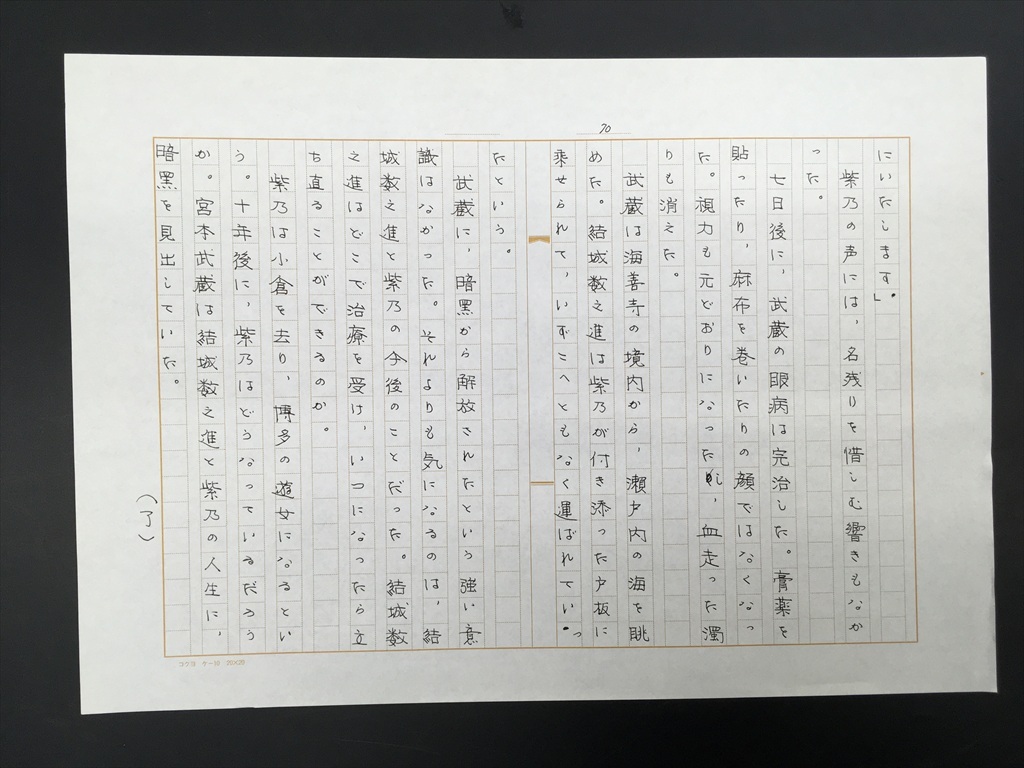 70
にいたします。」
紫乃の声には，名残りを惜しむ響きもなか
った。
七日後に，武蔵の眼病は完治した。膏薬を
貼ったり，麻布を巻いたりの顔ではなくなっ
た。視力も元どおりになったし，血走った濁
りも消えた。
武蔵は海善寺の境内から，瀬戸内の海を眺
めた。結城数之進は紫乃が付き添った戸板に
乗せられて，いずこへともなく運ばれていっ
たという。
武蔵に，暗黒から解放されたという強い意
識はなかった。それよりも気になるのは，結
城数之進と紫乃の今後のことだった。結城数
之進はどこで治療を受け，いつになったら立
ち直ることができるのか。
紫乃は小倉を去り，博多の遊女になるとい
う。十年後に，紫乃はどうなっているだろう
か。宮本武蔵は結城数之進と紫乃の人生に，
暗黒を見出していた。
（了）
コクヨ ケー10 20×20